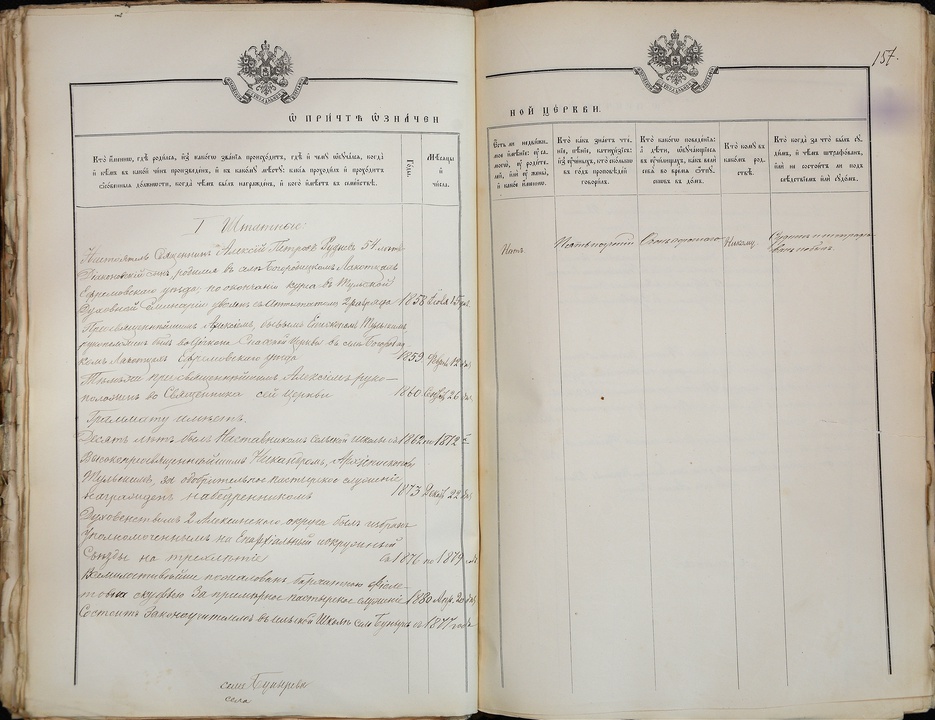 157.
Ѡ ПРИ́ЧТѢ Ѡ́ЗНАЧЕН
НОЙ ЦЕ́РКВИ.
Кто и́менно, гдѣ роди́лся, и́зъ како́гѡ зва́нїя происхо́дитъ, гдѣ и́ чемꙋ̀ ѡ҆бꙋча́лся, когда̀
и́ кѣмъ въ како́й чи́нъ произведе́нъ, и́ къ како́мꙋ мѣ́стꙋ: какі́я проходи́лъ и́ прохо́дитъ
до́лжности, когда̀ чѣ́мъ бы́лъ награжде́нъ, и́ кого̀ и́мѣетъ въ семе́йствѣ.
Го́ды.
Мѣ́сяцы
и́
чи́сла.
Є҆сть ли недви́жи-
мое и҆мѣ́нїе
и́ како́е и́менно.
Кто ка́къ зна́етъ чте́-
нїе, пѣ́нїе, катихи́зїсъ:
и́зъ ᲂу҆че́ныхъ, кто̀ ско́лько
въ го́дъ про́повѣдей
говори́лъ.
Кто како́гѡ поведе́нїя:
а҆ дѣ́ти, ѡ҆бꙋча́ющїеся
въ ᲂу҆чи́лищахъ, ка́къ велѝ
себѧ̀ во вре́мя ѿпꙋ-
ско́въ въ до́мъ.
Кто комꙋ̀ въ
како́мъ род-
ствѣ̀.
Кто когда̀ за что̀ бы́лъ сꙋ-
ди́мъ, и́ чѣ́мъ штрафо́ванъ,
и҆лѝ не состои́тъ ли под
слѣ́дствїемъ и҆лѝ сꙋдо́мъ.
I Штатного:
Настоятель Священникъ Алексій Петровъ Рудневъ 51 летъ
Діаконскій сынъ, родился въ селѣ Богородицкомъ Локотцахъ
Ефремовскаго уѣзда; по окончаніи курса въ Тульской
Духовной Семинаріи уволенъ съ аттестатомъ 2 разряда 1858 Іюля 15 дня
Преосвященнѣйшимъ Алексіемъ, бывшимъ Епископомъ Тульскимъ,
рукоположенъ былъ во діакона Спасской церкви въ село Богородиц-
комъ Локотцахъ Ефремовскаго уѣзда 1859 12 дня
Тѣмъ же преосвященнѣйшимъ Алексіемъ руко-
положенъ во Священника сей церкви 1860 26 дня
Граммату имѣетъ.
Десять лѣтъ былъ Наставникомъ сельской школы съ 1862 по 1872 г.
Высокопреосвященнѣйшимъ Никандромъ, Архіепископомъ
Тульскимъ, за одобрительное пастырское служеніе
награжденъ набедренникомъ 1873 Декаб. 22 дня
Духовенствомъ 2 Алексинскаго округа былъ избранъ
Уполномоченнымъ на Епархіальный и окружный
Съѣзды на трехлѣтіе съ 1876 по 1879 годъ
Всемилостивѣйше пожалованъ бархатною фіоле-
товою скуфьею за примѣрное пастырское служеніе 1880 Апр. 20 дня
Состоитъ Законоучителемъ въ сельской Школѣ села Бунырева съ 1877 года
Нѣтъ.
Никому.
селе Бунырева
села